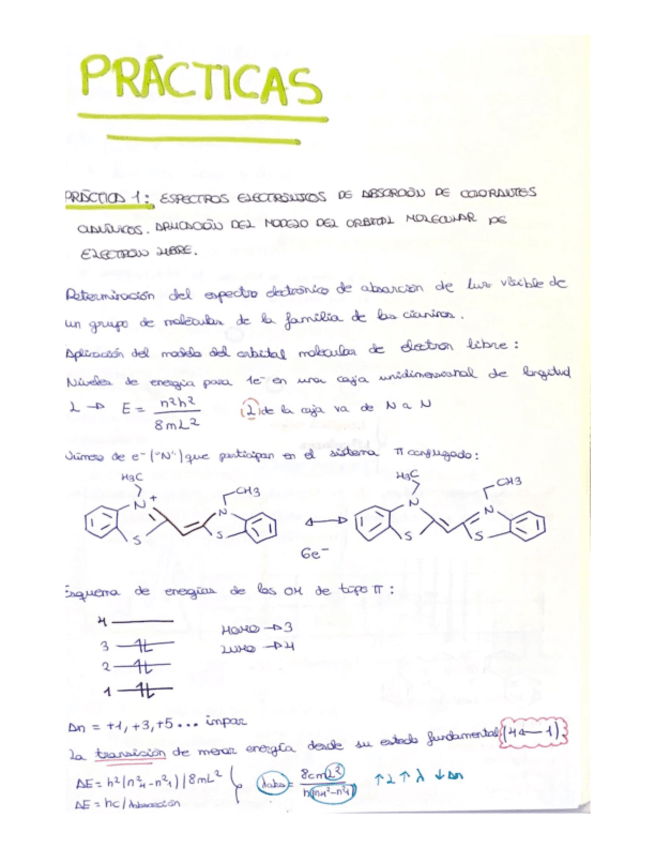 PRÁCTICAS
PRÁCTICA 1: ESPECTROS ELECTRÓNICOS DE ABSORCIÓN DE COLORANTES
CIANÍNICOS. APLICACIÓN DEL MODELO DEL ORBITAL MOLECULAR DE
ELECTRÓN LIBRE.
Determinación del espectro electrónico de absorción de luz visible de
un grupo de moléculas de la familia de las cianinas.
Aplicación del modelo del orbital molecular de electrón libre:
Niveles de energía para 1e⁻ en una caja unidimensional de longitud
L → E = n²h² / 8mL² (L) de la caja va de N a N
Número de e⁻ ("N") que participan en el sistema π conjugado:
H3C CH3 H3C CH3
N + N N N
S S ↔ S S
6e⁻
Esquema de energías de los OM de tipo π:
4
3 HOMO → 3
2 LUMO → 4
1
Δn = +1, +3, +5 ... impar
La transición de menor energía desde su estado fundamental (4←1).
ΔE = h²(n²4-n²1)/8mL² λabs = 8cmL² / h(n4²-n²1) ↑L ↑λ ↓Δn
ΔE = hc/λabsorción